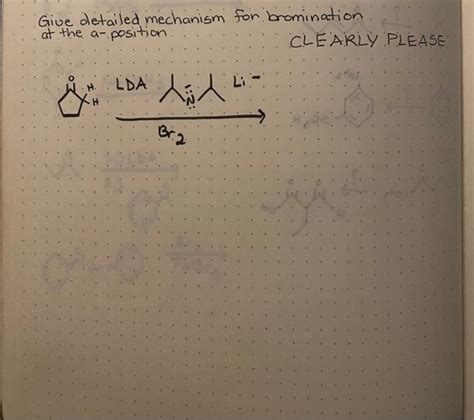 Give detailed mechanism for bromination
at the a-position
CLEARLY PLEASE
O
H
H
LDA
N
Li -
Br2